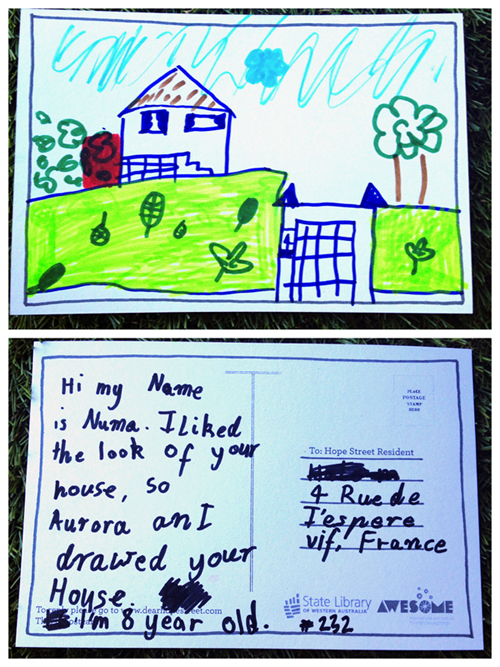 1
4
Hi my Name
is Numa. I liked
the look of your
house, so
Aurora an I
drawed your
House.
I'm 8 year old.
PLACE
POSTAGE
STAMP
HERE
To: Hope Street Resident
4 Rue de
l'espere
Vif, France
To reply please go to www.dearhopestreet.com
State Library
OF WESTERN AUSTRALIA
AWESOME
#232